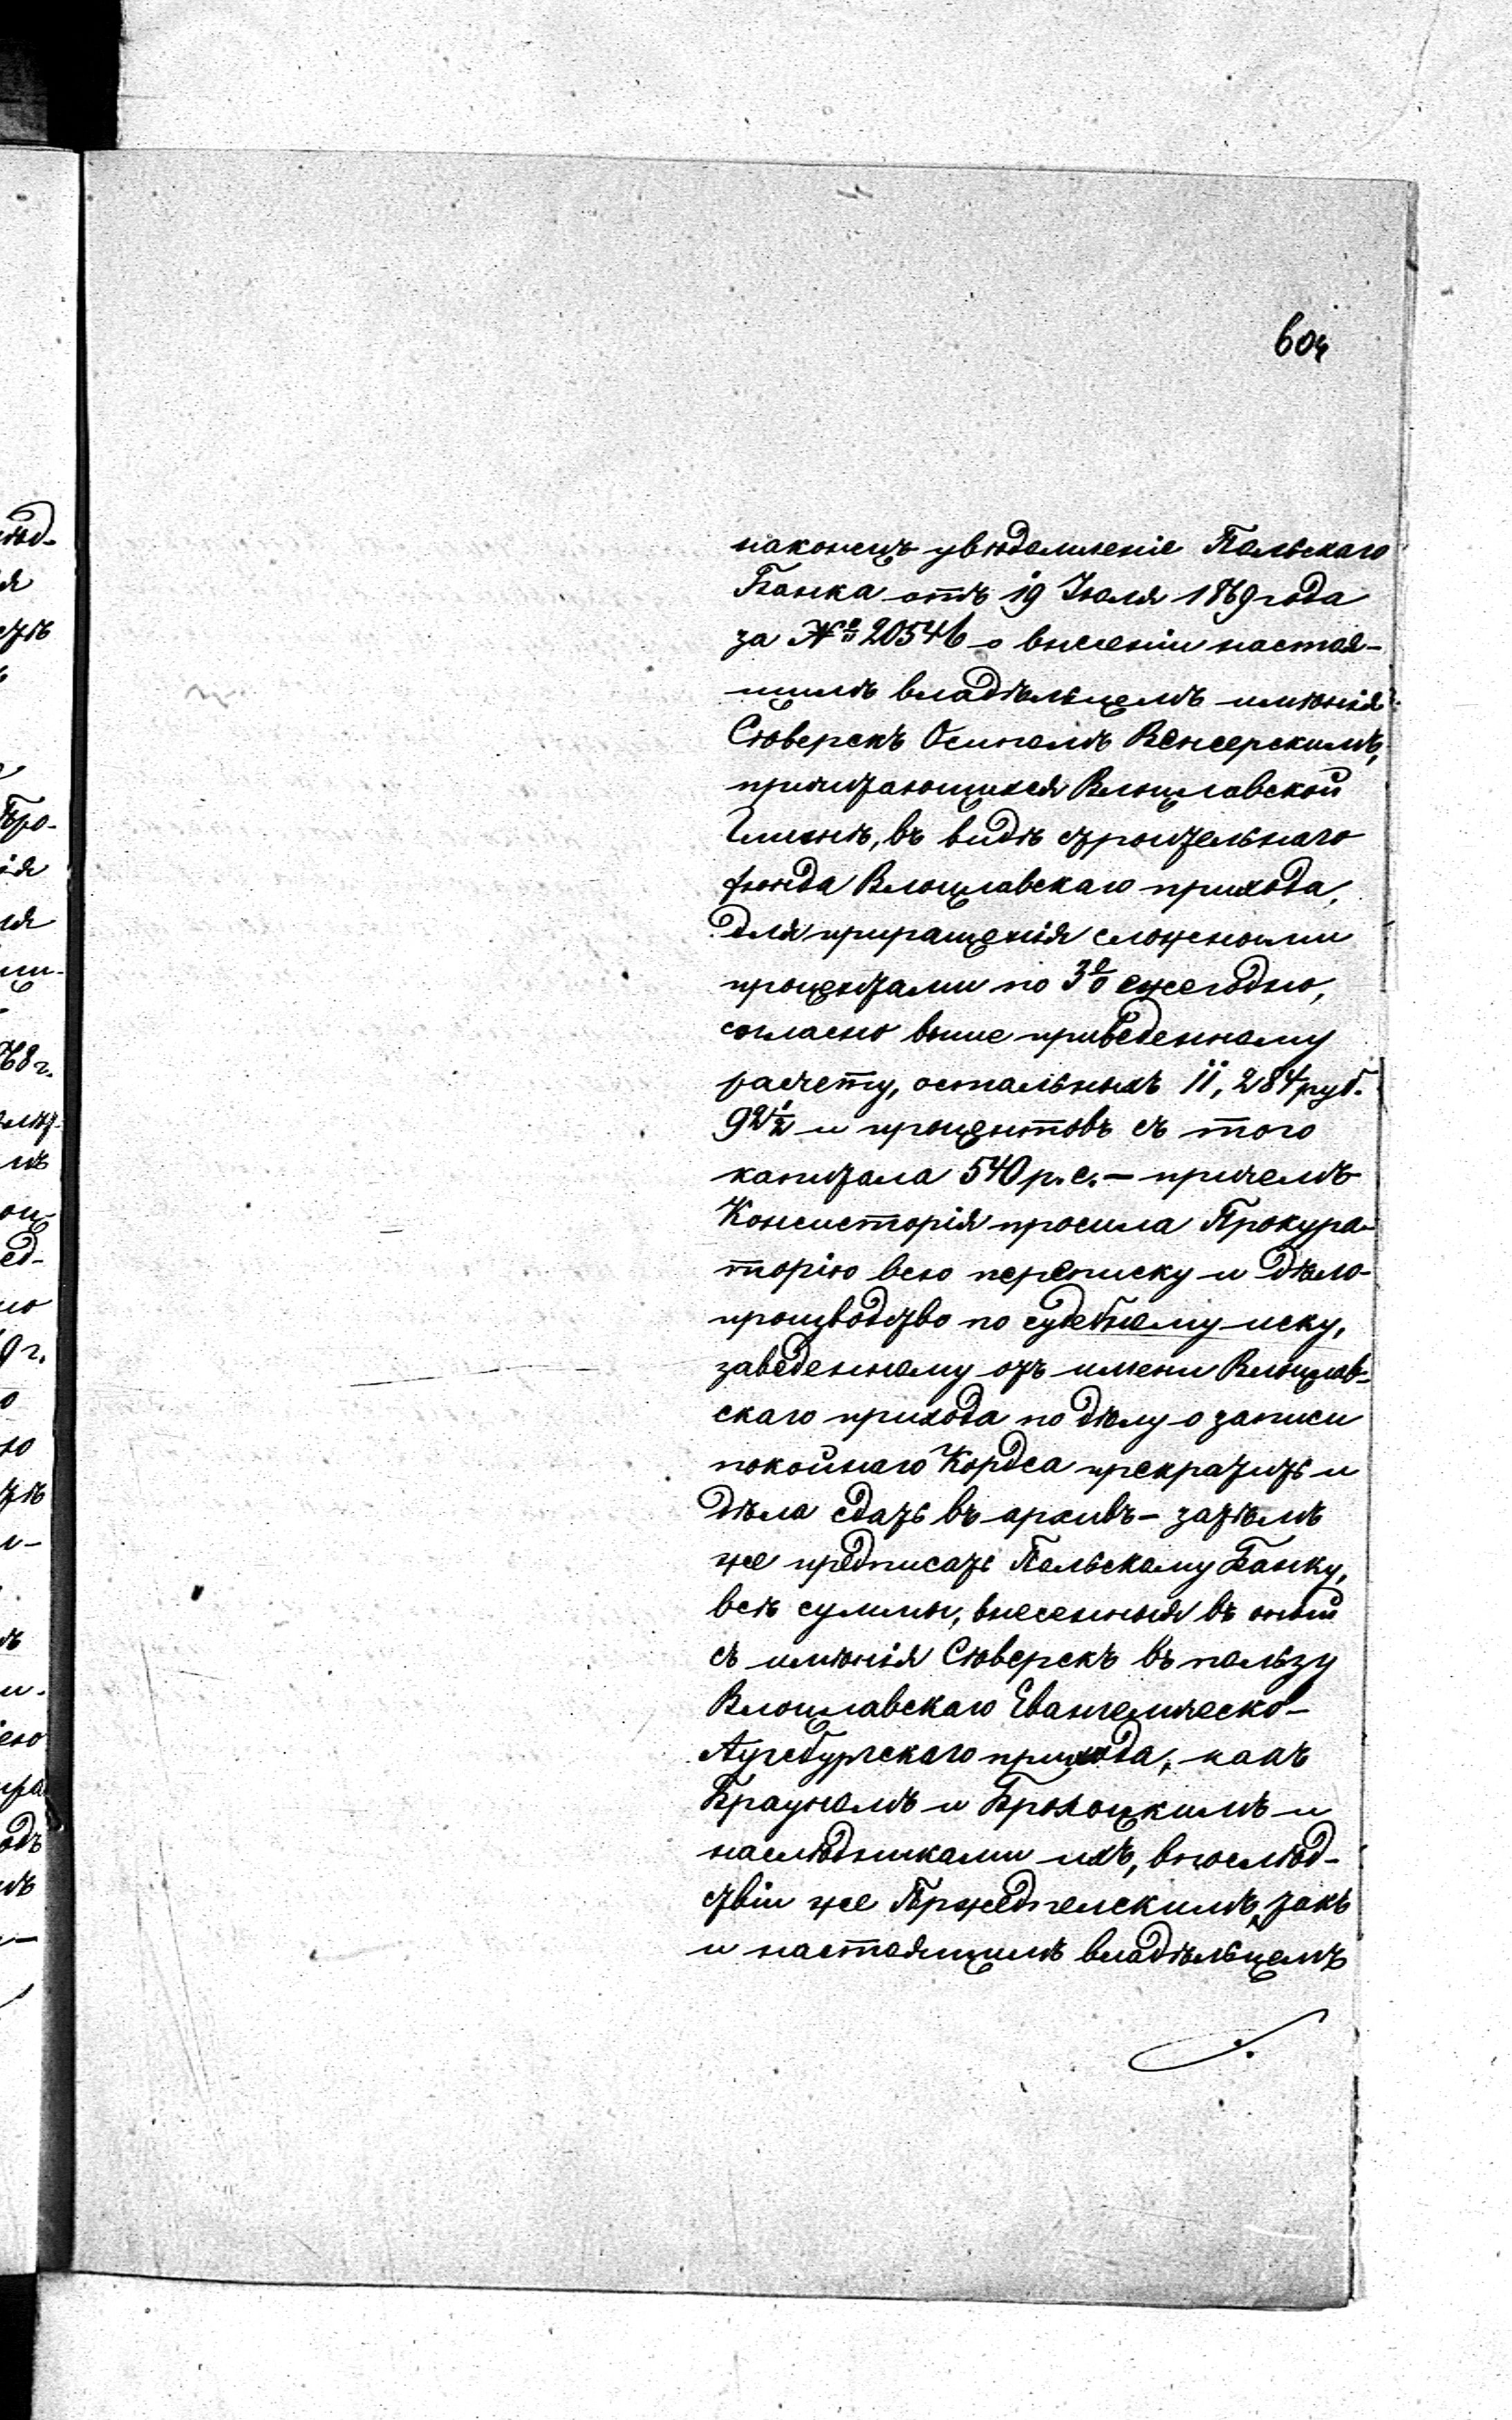 604
наконецъ увѣдомленіе Польскаго
Банка отъ 19 Іюля 1869 года
за № 20546 о внесеніи настоя-
щимъ владѣльцемъ имѣнія
Сѣверскъ Осипомъ Венсерскимъ,
причитающихся Влоцлавской
Гминѣ, въ видѣ строительнаго
фонда Влоцлавскаго прихода,
для приращенія сложными
процентами по 3% ежегодно,
согласно выше приведенному
расчету, остальныхъ 11,284 руб.
92½ и процентовъ съ того
капитала 540 р. с. — причемъ
Консисторія просила Прокура-
торію всю переписку и дѣло-
производство по судебному иску,
заведенному отъ имени Влоцлав-
скаго прихода по дѣлу о записи
покойнаго Кордса прекратить и
дѣла сдать въ архивъ — затѣмъ
же предписать Польскому Банку,
всѣ суммы, внесенныя въ оный
съ имѣнія Сѣверскъ въ пользу
Влоцлавскаго Евангелическо-
Аугсбургскаго прихода, какъ
Брауномъ и Брохоцкимъ и
наслѣдниками ихъ, впослѣд-
ствіи же Пржедпелскимъ, такъ
и настоящимъ владѣльцемъ